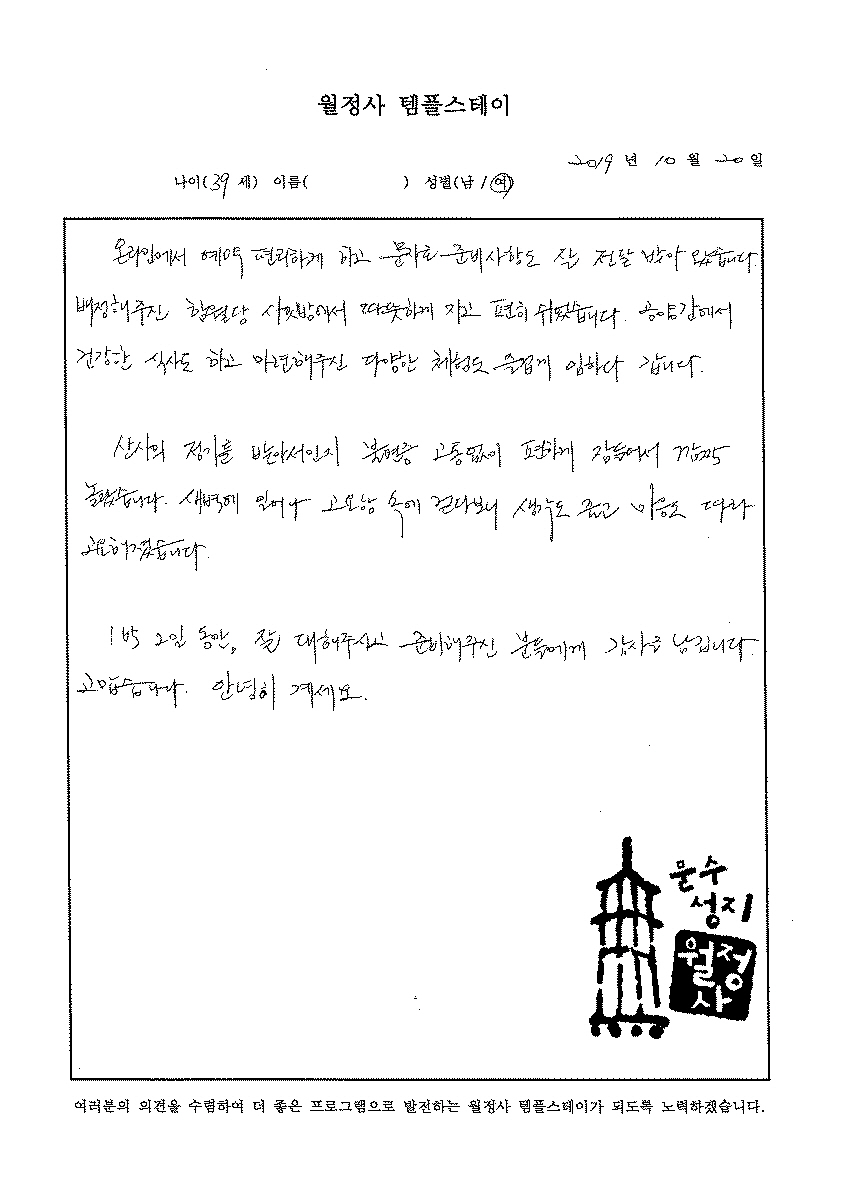 월정사 템플스테이
2019 년 10 월 20 일
나이(39 세) 이름( ) 성별(남 / 여)
온라인에서 예약 편리하게 하고 문자로 준비사항도 잘 전달 받아 왔습니다.
배정해주신 방에서 따뜻하게 자고 편히 쉬었습니다. 공양간에서
건강한 식사도 하고 마련해주신 다양한 체험도 즐겁게 임하다 갑니다.
산사의 정기를 받아서인지 불면증 고통없이 편하게 잠들어서 깜짝
놀랐습니다. 새벽에 일어나 고요함 속에 걷다보니 생각도 줄고 마음도 따라
고요해졌습니다.
1박 2일 동안, 잘 대해주시고 준비해주신 분들에게 감사를 남깁니다.
고맙습니다. 안녕히 계세요.
문수
성지
월정
사
여러분의 의견을 수렴하여 더 좋은 프로그램으로 발전하는 월정사 템플스테이가 되도록 노력하겠습니다.